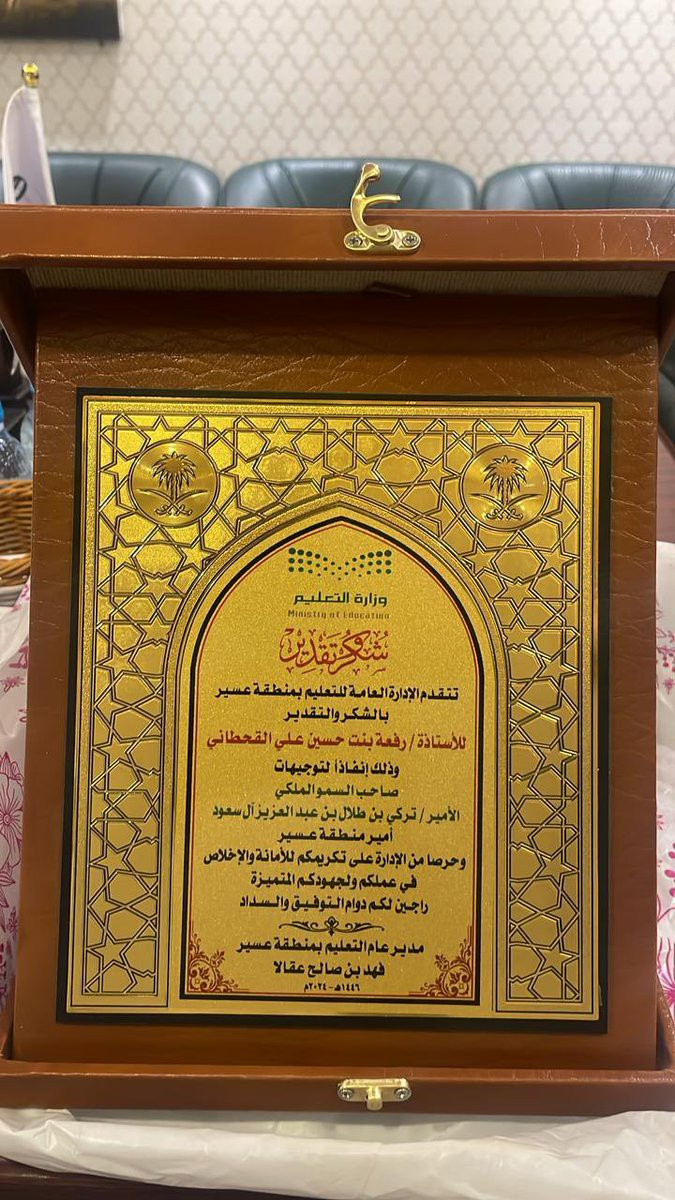 وزارة التعليم
Ministry of Education
شكر وتقدير
تتقدم الإدارة العامة للتعليم بمنطقة عسير
بالشكر والتقدير
للأستاذة / رفعة بنت حسين علي القحطاني
وذلك إنفاذا لتوجيهات
صاحب السمو الملكي
الأمير / تركي بن طلال بن عبد العزيز آل سعود
أمير منطقة عسير
وحرصا من الإدارة على تكريمكم للأمانة والإخلاص
في عملكم ولجهودكم المتميزة
راجين لكم دوام التوفيق والسداد
مدير عام التعليم بمنطقة عسير
فهد بن صالح عقالا
١٤٤٦هـ - ٢٠٢٤م